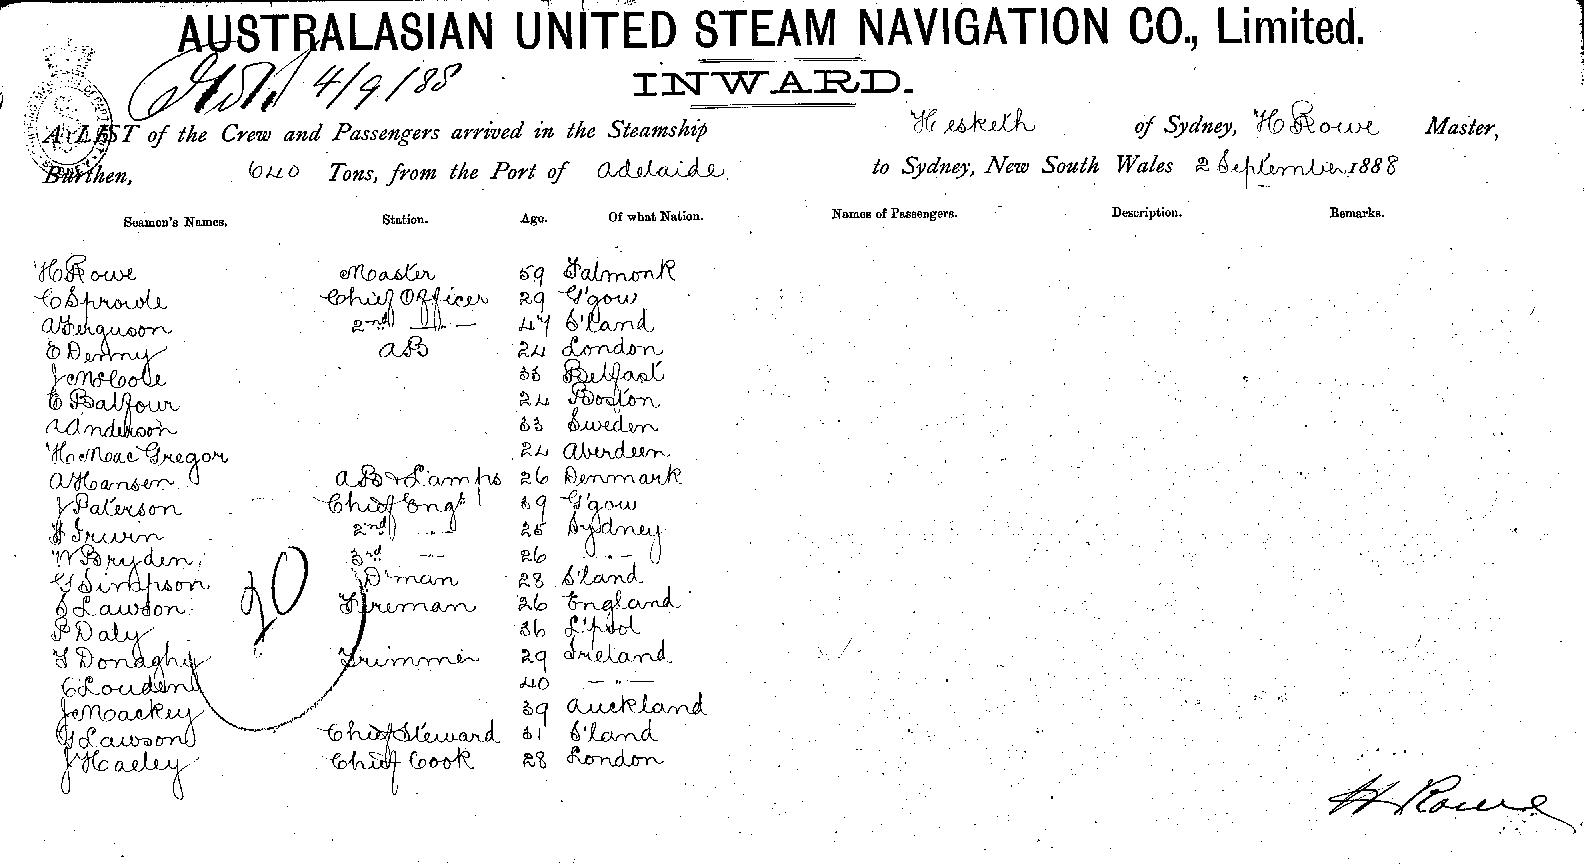 AUSTRALASIAN UNITED STEAM NAVIGATION CO., Limited.
4/9/88
INWARD.
A LIST of the Crew and Passengers arrived in the Steamship Hesketh of Sydney, H Rowe Master,
Burthen, 640 Tons, from the Port of Adelaide to Sydney, New South Wales 2 September 1888
Seamen's Names, Station. Age. Of what Nation. Names of Passengers. Description. Remarks.
H Rowe Master 59 Falmonk
C Sproule Chief Officer 29 G'gow
A Ferguson 2nd —"— 47 S'land
E Denny AB 24 London
J McCole 35 Belfast
E Balfour 24 Boston
A Anderson 33 Sweden
H MacGregor 24 Aberdeen
A Hansen AB & Lamps 26 Denmark
J Paterson Chief Engr 39 G'gow
Irwin 2nd " 25 Sydney
W Bryden 3rd " 26 —"—
G Simpson D'man 28 S'land
Lawson Fireman 26 England
P Daly 36 L'pool
F Donaghy Trimmer 29 Ireland
C Louden 40 —"—
J Mackey 39 Auckland
G Lawson Chief Steward 31 S'land
J Haeley Chief Cook 28 London
20
H Rowe